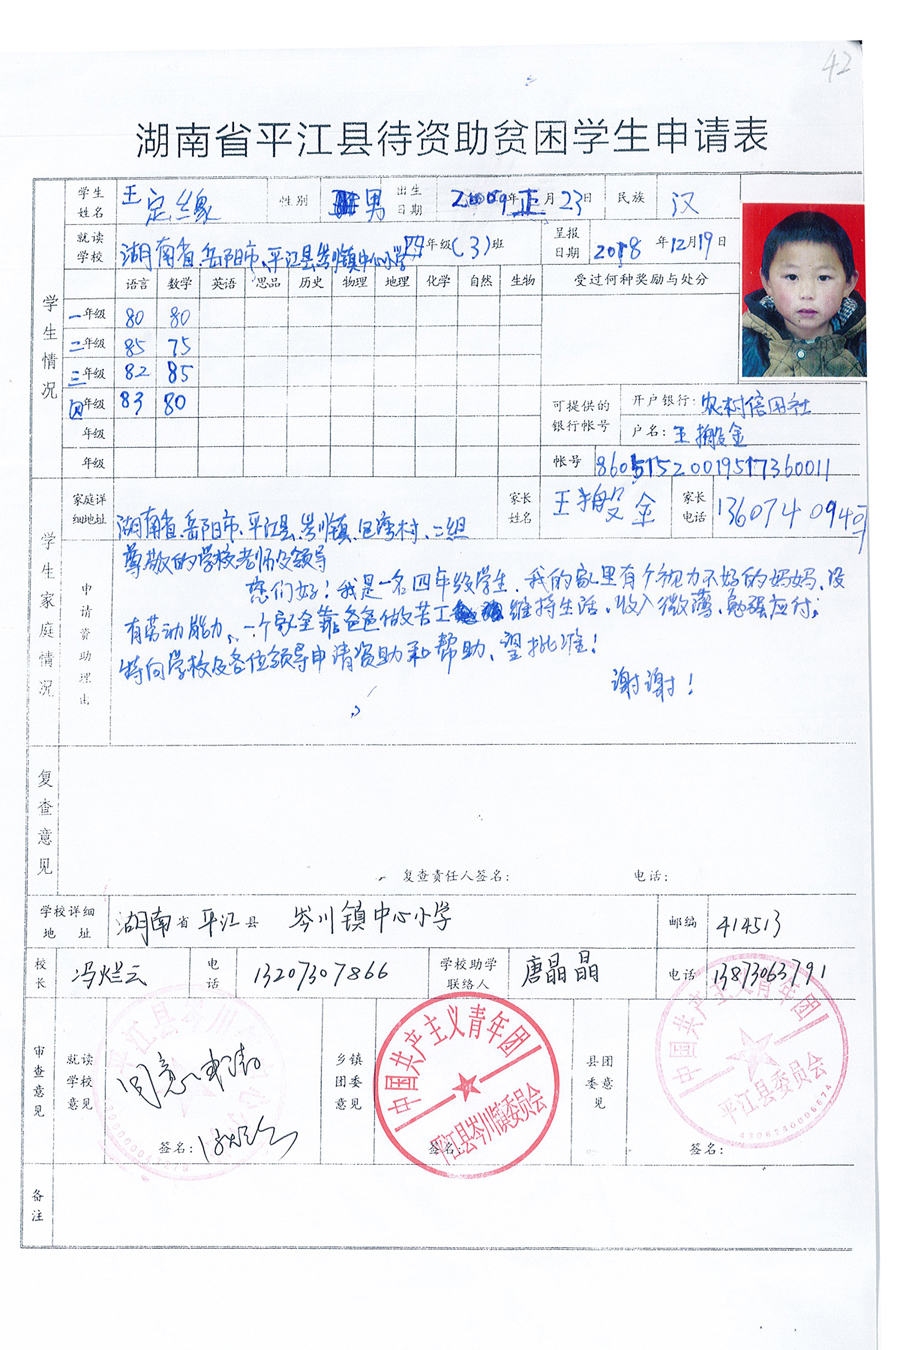 42
湖南省平江县待资助贫困学生申请表
学生姓名 王定缘 性别 男 出生日期 2009年正月23日 民族 汉
就读学校 湖南省岳阳市、平江县岑川镇中心小学 四年级(3)班 呈报日期 2018年12月19日
学生情况
语言 数学 英语 思品 历史 物理 地理 化学 自然 生物 受过何种奖励与处分
一年级 80 80
二年级 85 75
三年级 82 85
四年级 83 80
年级
年级
可提供的银行帐号 开户银行:农村信用社
户名:王搬金
帐号 86051520019517360011
学生家庭情况
家庭详细地址 湖南省、岳阳市、平江县、岑川镇、包湾村、二组 家长姓名 王搬金 家长电话
申请资助理由
尊敬的学校老师及领导
您们好!我是一名四年级学生、我的家里有个视力不好的妈妈、没
有劳动能力、一个家全靠爸爸做苦工维持生活、收入微薄、勉强应付;
特向学校及各位领导申请资助和帮助、望批准!
谢谢!
复查意见
复查责任人签名: 电话:
学校详细地址 湖南省平江县 岑川镇中心小学 邮编 414513
校长 冯烂云 电话 13207307866 学校助学联络人 唐晶晶 电话 13873063791
审查意见 就读学校意见 同意申请 签名:
乡镇团委意见 签名: 中国共产主义青年团 平江县岑川镇委员会
县团委意见 签名: 中国共产主义青年团 平江县委员会
备注